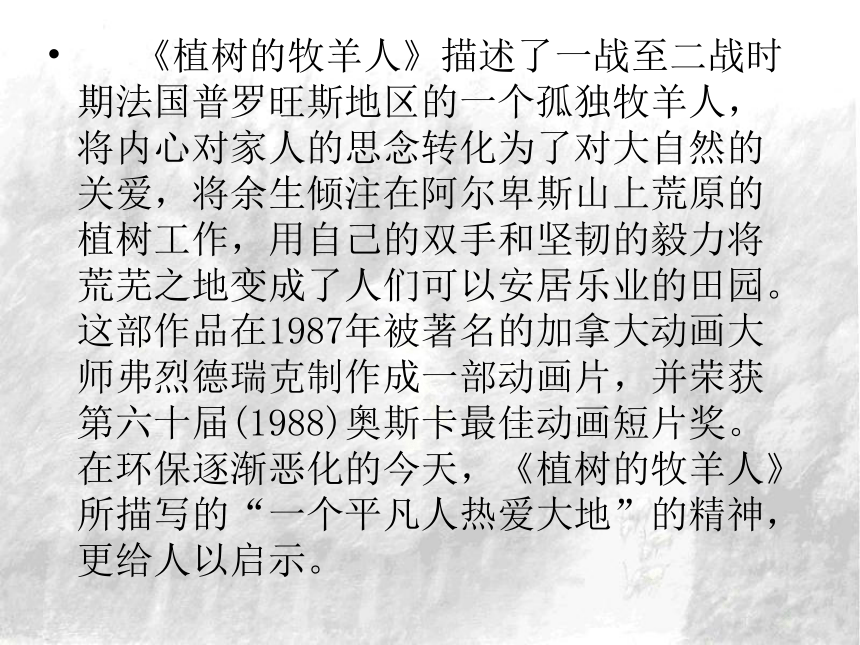 • 《植树的牧羊人》描述了一战至二战时
期法国普罗旺斯地区的一个孤独牧羊人，
将内心对家人的思念转化为了对大自然的
关爱，将余生倾注在阿尔卑斯山上荒原的
植树工作，用自己的双手和坚韧的毅力将
荒芜之地变成了人们可以安居乐业的田园。
这部作品在1987年被著名的加拿大动画大
师弗烈德瑞克制作成一部动画片，并荣获
第六十届(1988)奥斯卡最佳动画短片奖。
在环保逐渐恶化的今天，《植树的牧羊人》
所描写的“一个平凡人热爱大地”的精神，
更给人以启示。